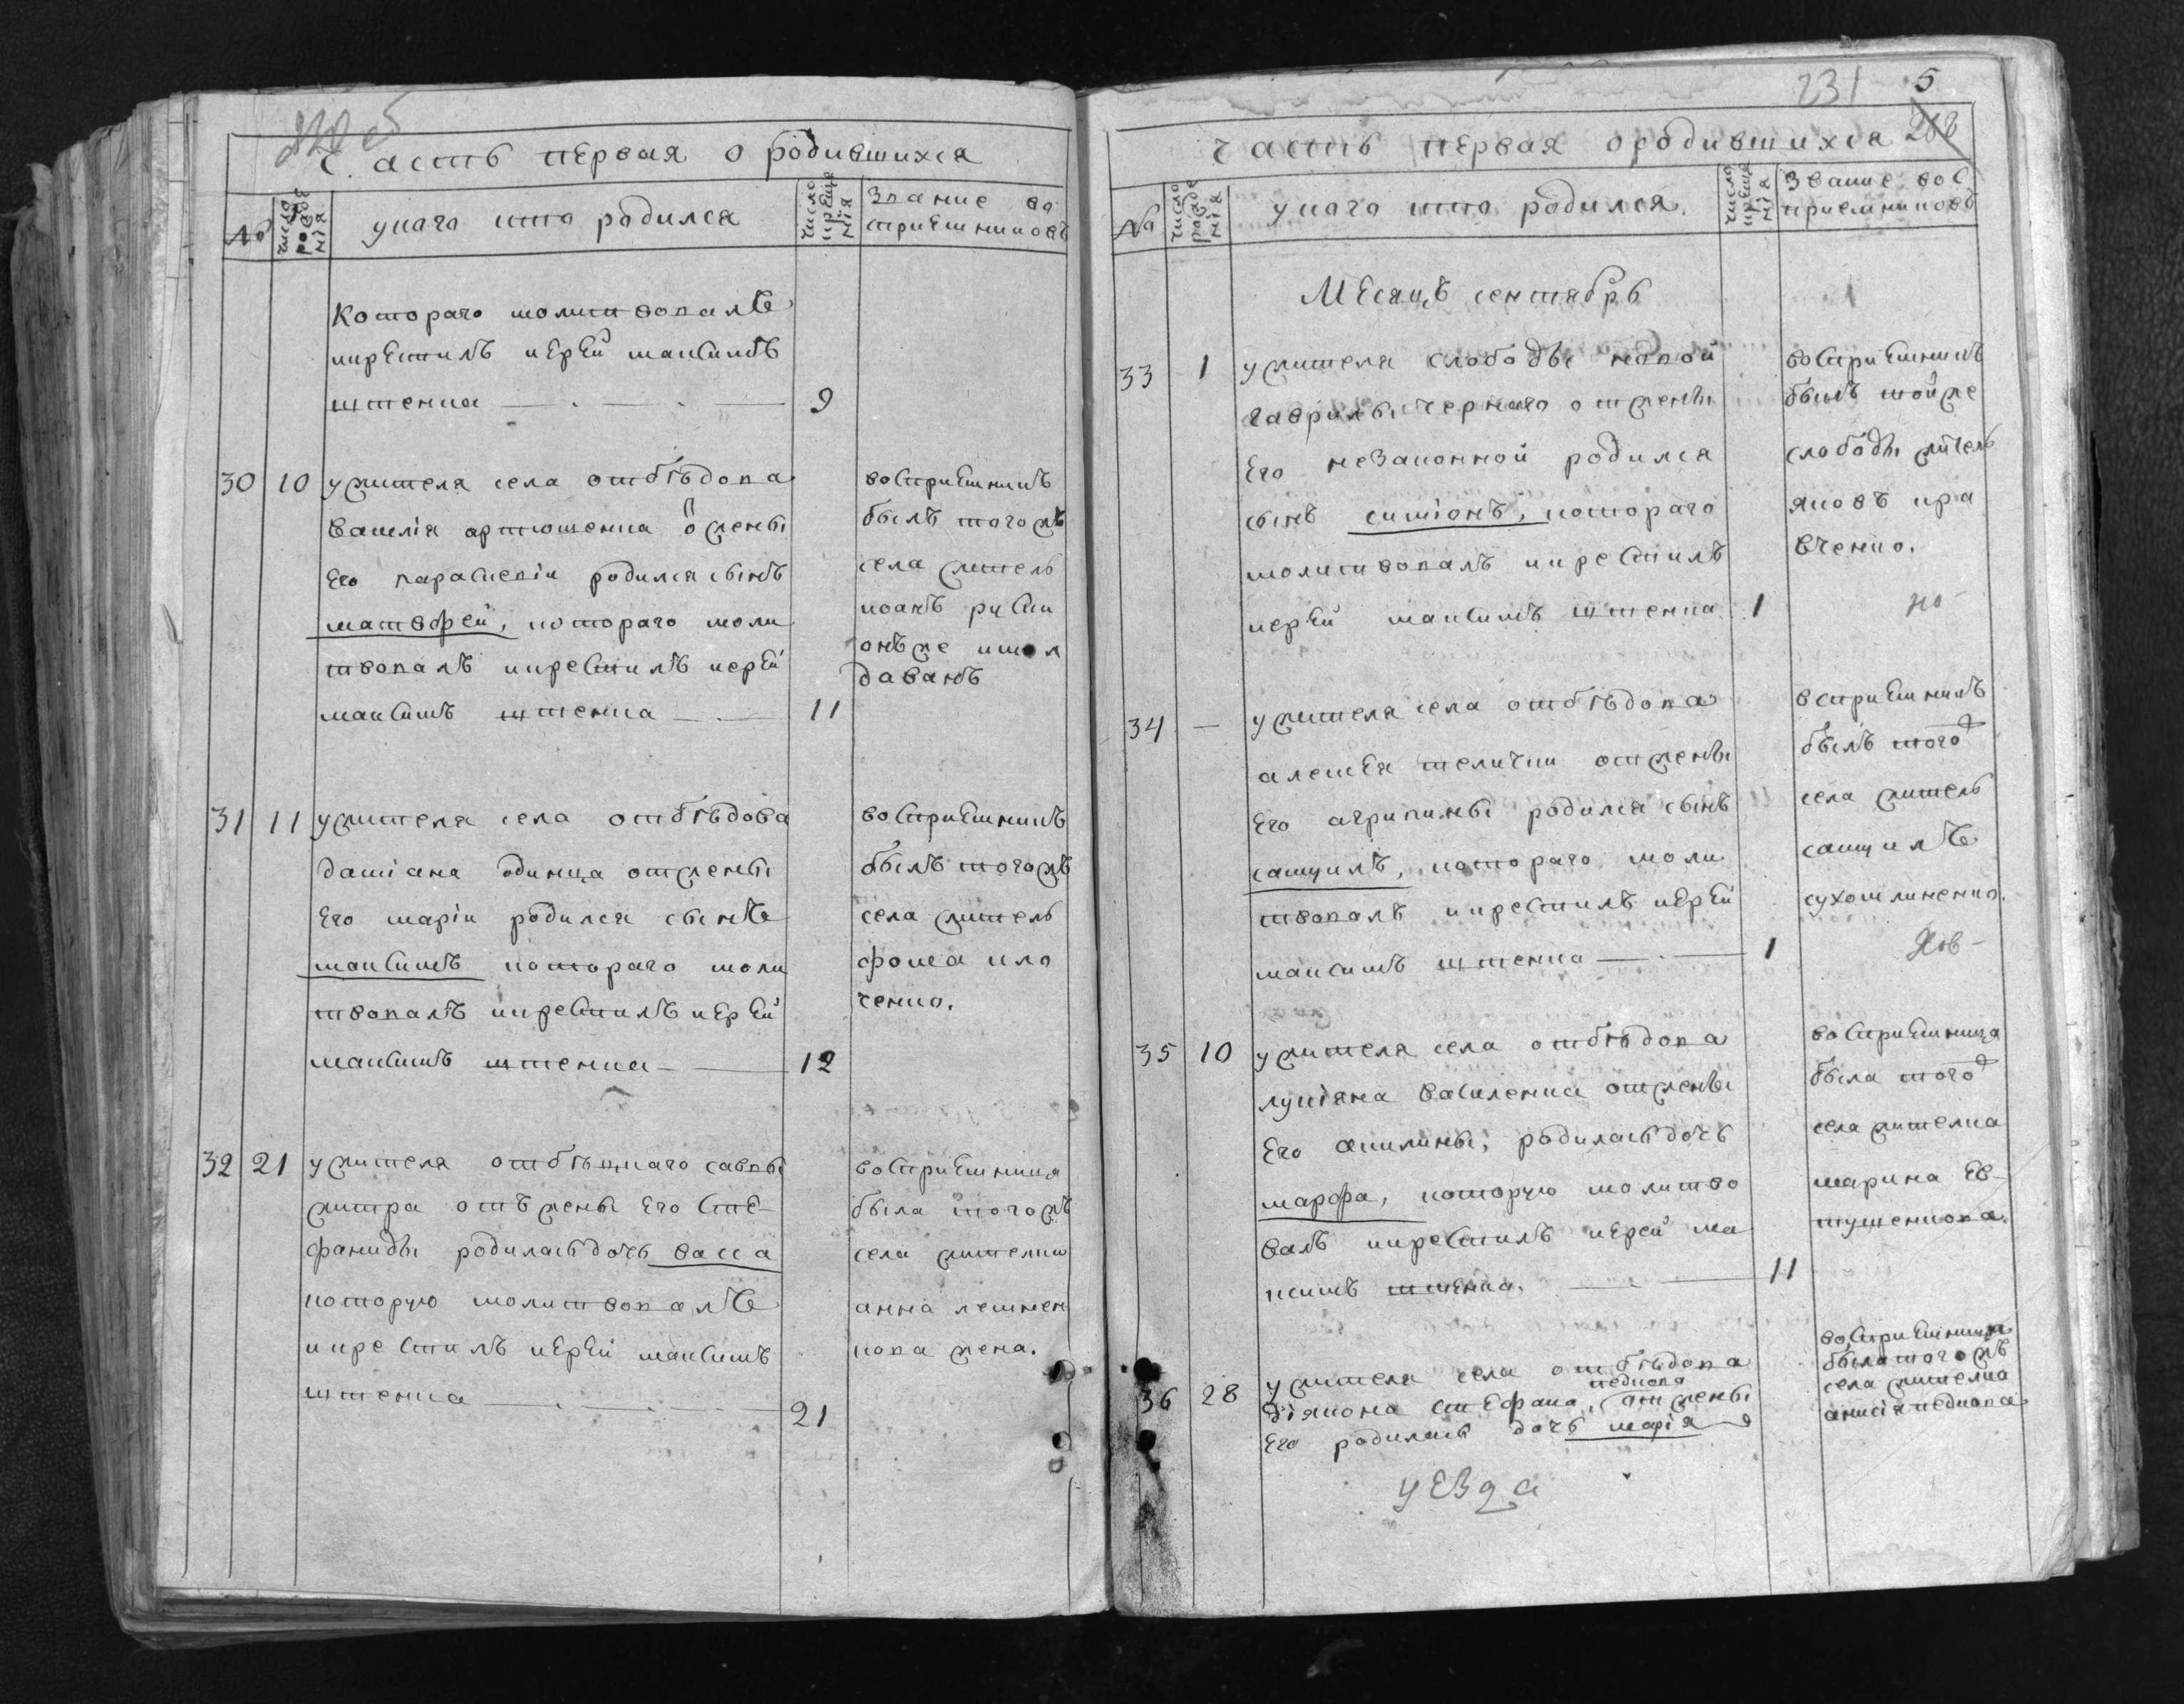 Часть первая о родившихся
№
число рождения
у кого кто родился
число крещения
Звание восприемниковъ
которого молитвовалъ
икрестилъ иерей максимъ
9
30 10 ужителя села отбѣдова
василія артюшенка о жены
Его параскевіи родился сынъ
матвфей, которого моли
твовалъ икрестилъ иерей
максимъ
11
восприемникъ
былъ тогожъ
села житель
31 11 ужителя села отбѣдова
даміана одинца отжены
Его маріи родился сынъ
максимъ которого моли
твовалъ икрестилъ иерей
максимъ
12
восприемникъ
былъ тогожъ
села житель
фома кло
ченко.
32 21 ужителя саввы
отъ жены Его сте
фаниды родиласьдочь васса
которую молитвовалъ
икрестилъ иерей максимъ
21
восприемница
была тогожъ
села жителка
анна
кова жена.
231 5
Часть первая ородившихся
№
число рождения
у кого кто родился.
число крещения
Звание восприемниковъ
Месяцъ сентябрь
33 1 ужителя слободы новой
гаврилы чернаго отжены
Его незаконной родился
сынъ симіонъ, которого
молитвовалъ икрестилъ
иерей максимъ
1
восприемникъ
былъ тойже
слободы житель
яковъ кра
вченко.
34 — ужителя села отбѣдова
алексея телички отжены
Его агрипины родился сынъ
самуилъ, которого моли
твовалъ икрестилъ иерей
максимъ
1
восприемникъ
былъ того
села житель
самуилъ
сухомлиненко.
35 10 ужителя села отбѣдова
лукіяна василенка отжены
Его акилины, родиласьдочь
марфа, которую молитво
валъ икрестилъ иерей ма
ксимъ
11
восприемница
была того
села жителка
марина ев
тушенкова.
36 28 ужителя села отбѣдова
стефана, отжены
Его родилась дочь марія
восприемница
была тогожъ
села жителка
уезда